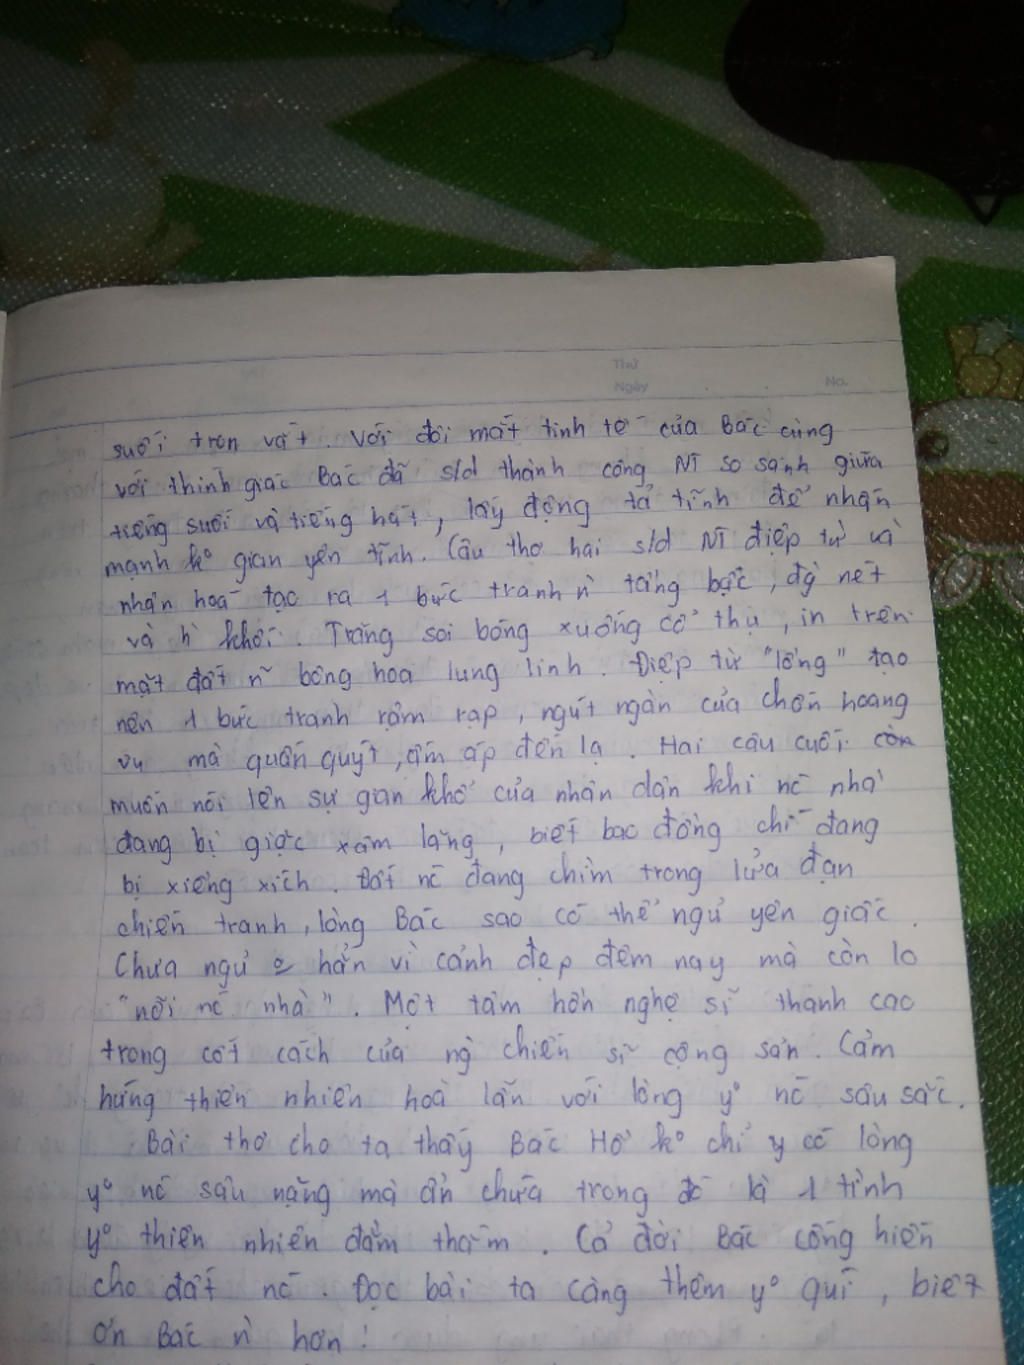 Thứ
Ngày No.
suối trong vắt. Với đôi mắt tinh tế của Bác cùng
với thính giác Bác đã s/d thành công NT so sánh giữa
tiếng suối và tiếng hát, lấy động tả tĩnh để nhấn
mạnh k° gian yên tĩnh. Câu thơ hai s/d NT điệp từ và
nhân hoá tạo ra 1 bức tranh n` tầng bậc, đg` nét
và h` khối. Trăng soi bóng xuống cổ thụ, in trên
mặt đất n~ bông hoa lung linh. Điệp từ "lồng" tạo
nên 1 bức tranh rậm rạp, ngút ngàn của chốn hoang
vu mà quấn quýt, ấm áp đến lạ. Hai câu cuối còn
muốn nói lên sự gian khổ của nhân dân khi nc nhà
đang bị giặc xâm lăng, biết bao đồng chí đang
bị xiềng xích. Đất nc đang chìm trong lửa đạn
chiến tranh, lòng Bác sao có thể ngủ yên giấc.
Chưa ngủ hẳn vì cảnh đẹp đêm nay mà còn lo
"nỗi nc nhà". Một tâm hồn nghệ sĩ thanh cao
trong cốt cách của ng` chiến sĩ cộng sản. Cảm
hứng thiên nhiên hoà lẫn với lòng y° nc sâu sắc.
Bài thơ cho ta thấy Bác Hồ k° chỉ có lòng
y° nc sâu nặng mà ẩn chứa trong đó là 1 tình
y° thiên nhiên đằm thắm. Cả đời Bác cống hiến
cho đất nc. Đọc bài ta càng thêm y° quí, biết
ơn Bác n` hơn!